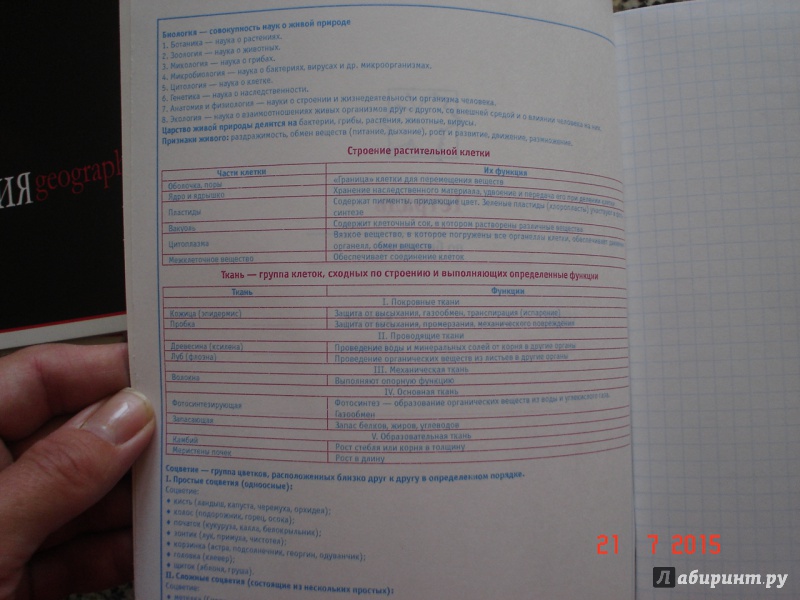 Биология — совокупность наук о живой природе
1. Ботаника — наука о растениях.
2. Зоология — наука о животных.
3. Микология — наука о грибах.
4. Микробиология — наука о бактериях, вирусах и др. микроорганизмах.
5. Цитология — наука о клетке.
6. Генетика — наука о наследственности.
7. Анатомия и физиология — науки о строении и жизнедеятельности организма человека.
8. Экология — наука о взаимоотношениях живых организмов друг с другом, со внешней средой и о влиянии человека на них.
Царство живой природы делится на бактерии, грибы, растения, животные, вирусы.
Признаки живого: раздражимость, обмен веществ (питание, дыхание), рост и развитие, движение, размножение.
Строение растительной клетки
Части клетки Их функция
Оболочка, поры «Граница» клетки для перемещения веществ
Ядро и ядрышко Хранение наследственного материала, удвоение и передача его при делении клетки
Пластиды Содержат пигменты, придающие цвет. Зеленые пластиды (хлоропласты) участвуют в
синтезе
Вакуоль Содержит клеточный сок, в котором растворены различные вещества
Цитоплазма Вязкое вещество, в которое погружены все органоиды клетки, обеспечивает
органелл, обмен веществ
Межклеточное вещество Обеспечивает соединение клеток
Ткань — группа клеток, сходных по строению и выполняющих определенные функции
Ткань Функции
I. Покровные ткани
Кожица (эпидермис) Защита от высыхания, газообмен, транспирация (испарение)
Пробка Защита от высыхания, промерзания, механического повреждения
II. Проводящие ткани
Древесина (ксилема) Проведение воды и минеральных солей от корня в другие органы
Луб (флоэма) Проведение органических веществ из листьев в другие органы
III. Механическая ткань
Волокна Выполняют опорную функцию
IV. Основная ткань
Фотосинтезирующая Фотосинтез — образование органических веществ из воды и углекислого газа
Газообмен
Запасающая Запас белков, жиров, углеводов
V. Образовательная ткань
Камбий Рост стебля или корня в толщину
Меристемы почек Рост в длину
Соцветие — группа цветков, расположенных близко друг к другу в определенном порядке.
I. Простые соцветия (одноосные):
Соцветие:
♦ кисть (ландыш, капуста, черемуха, орхидея);
♦ колос (подорожник, горец, осока);
♦ початок (кукуруза, калла, белокрыльник);
♦ зонтик (лук, примула, чистотел);
♦ корзинка (астра, подсолнечник, георгин, одуванчик);
♦ головка (клевер);
♦ щиток (яблоня, груша).
II. Сложные соцветия (состоящие из нескольких простых):
Соцветие:
♦ метелка
ИЯ geograph
21 7 2015
Лабиринт.ру